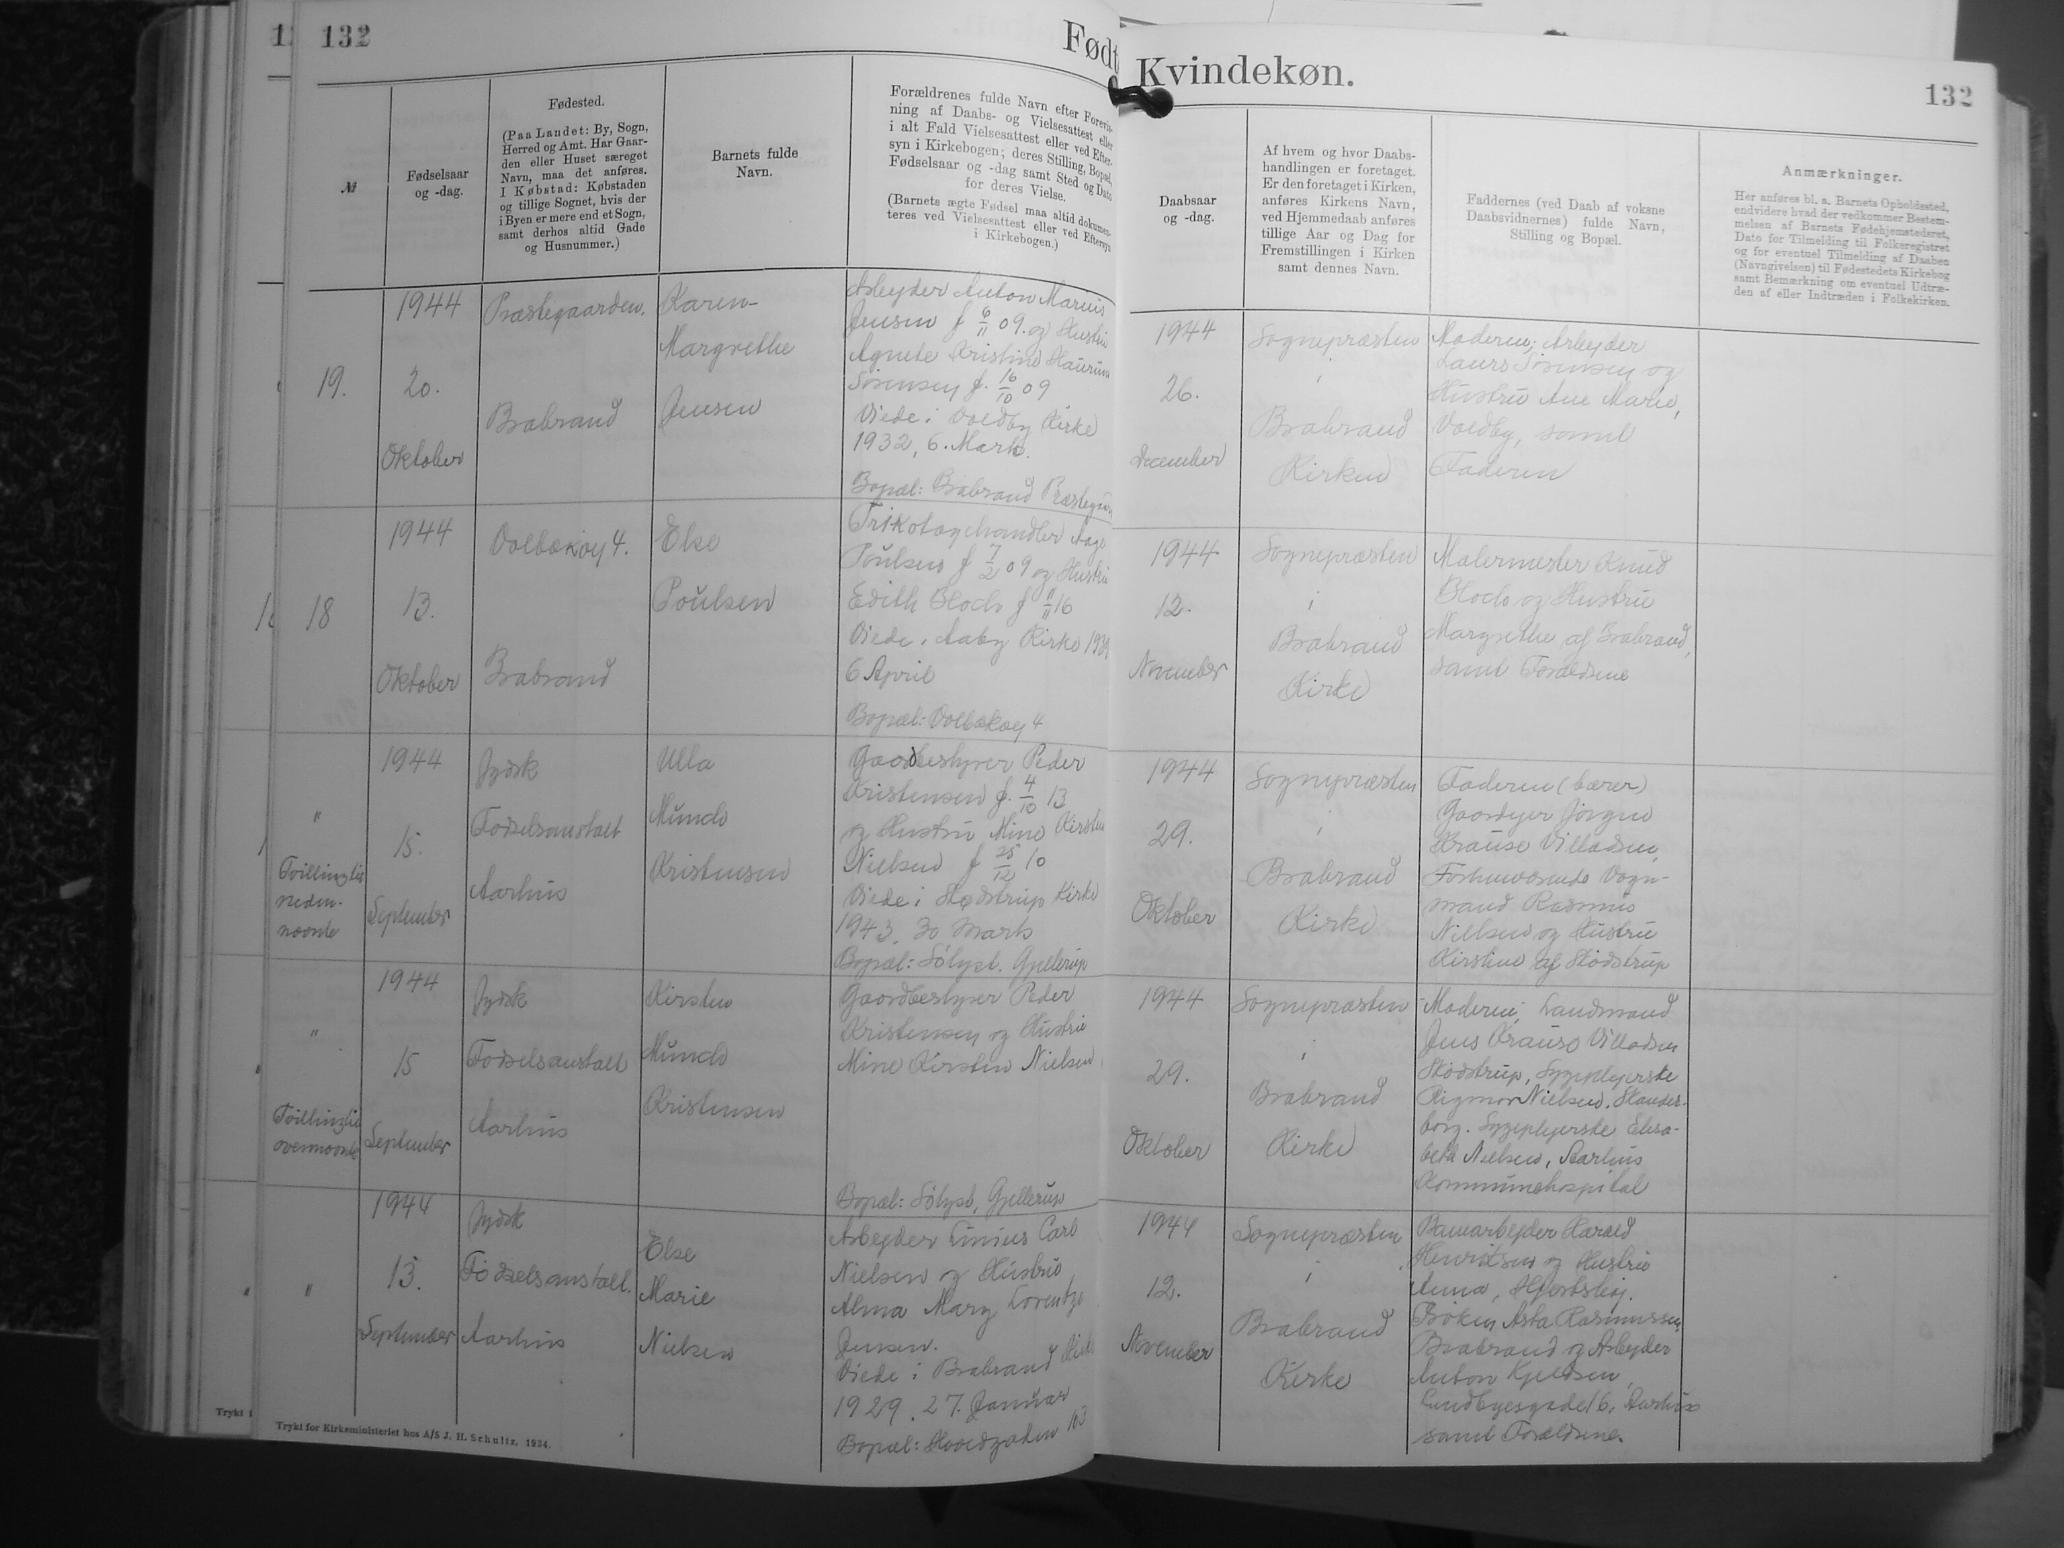 132
Født
№
Fødselsaar
og -dag.
Fødested.
(Paa Landet: By, Sogn,
Herred og Amt. Har Gaar-
den eller Huset særeget
Navn, maa det anføres.
I Købstad: Købstaden
og tillige Sognet, hvis der
i Byen er mere end et Sogn,
samt derhos altid Gade
og Husnummer.)
Barnets fulde
Navn.
Forældrenes fulde Navn efter Forevis-
ning af Daabs- og Vielsesattest eller
i alt Fald Vielsesattest eller ved Efter-
syn i Kirkebogen; deres Stilling, Bopæl,
Fødselsaar og -dag samt Sted og Dato
for deres Vielse.
(Barnets ægte Fødsel maa altid dokumen-
teres ved Vielsesattest eller ved Eftersyn
i Kirkebogen.)
19.
1944
20.
Oktober
Præstegaarden.
Brabrand
Karen-
Margrethe
Jensen
Arbejder Anton Marius
Jensen f 6/11 09. og Hustru
Agnete Kristine
Sørensen f. 16/10 09
Viede i Voldby Kirke
1932, 6. Marts.
Bopæl: Brabrand
18
1944
13.
Oktober
4.
Brabrand
Else
Poulsen
Trikotagehandler Aage
Poulsen f 7/2 09 og Hustru
Edith Bloch f 11/11 16
Viede i Aaby Kirke
6 April
Bopæl: 4
"
Tvillinglis
neden-
nævnte
1944
15.
September
Jydsk
Fødselsanstalt
Aarhus
Ulla
Munch
Kristensen
Gaardbestyrer Peder
Kristensen f. 4/10 13
og Hustru Mine Kirsten
Nielsen f 25/12 10
Viede i Skødstrup Kirke
1943. 30 Marts
Bopæl: Sølyst. Gjellerup
"
ovennævnte
1944
15
September
Jydsk
Fødselsanstalt
Aarhus
Kirsten
Munch
Kristensen
Gaardbestyrer Peder
Kristensen og Hustru
Mine Kirsten Nielsen
Bopæl: Sølyst, Gjellerup
"
1944
13.
September
Jydsk
Fødselsanstalt.
Aarhus
Else
Marie
Nielsen
Arbejder Linius Carl
Nielsen og Hustru
Alma Mary
Jensen.
Viede i Brabrand Kirke
1929. 27. Januar
Bopæl: Hovedgaden 103
Trykt for Kirkeministeriet hos A/S J. H. Schultz. 1934.
Kvindekøn.
132
Daabsaar
og -dag.
Af hvem og hvor Daabs-
handlingen er foretaget.
Er den foretaget i Kirken,
anføres Kirkens Navn,
ved Hjemmedaab anføres
tillige Aar og Dag for
Fremstillingen i Kirken
samt dennes Navn.
Faddernes (ved Daab af voksne
Daabsvidnernes) fulde Navn,
Stilling og Bopæl.
Anmærkninger.
Her anføres bl. a. Barnets Opholdssted,
endvidere hvad der vedkommer Bestem-
melsen af Barnets Fødehjemstedsret,
Dato for Tilmelding til Folkeregistret
og for eventuel Tilmelding af Daaben
(Navngivelsen) til Fødestedets Kirkebog
samt Bemærkning om eventuel Udtræ-
den af eller Indtræden i Folkekirken.
1944
26.
December
Sognepræsten
i
Brabrand
Kirken
Moderen, Arbejder
Laurs Sørensen og
Hustru Ane Marie,
Voldby, samt
Faderen
1944
12.
November
Sognepræsten
i
Brabrand
Kirke
Malermester Knud
Bloch og Hustru
Margrethe af Brabrand,
samt Forældrene
1944
29.
Oktober
Sognepræsten
i
Brabrand
Kirke
Faderen (bærer)
Gaardejer Jørgen
Krause Villadsen,
Forhenværende Vogn-
mand Rasmus
Nielsen og Hustru
Kirstine af Skødstrup
1944
29.
Oktober
Sognepræsten
i
Brabrand
Kirke
Moderen, Landmand
Jens Krause Villadsen
Skødstrup, Sygeplejerske
Rigmor Nielsen. Skander-
borg. Sygeplejerske Elisa-
beth Nielsen, Aarhus
Kommunehospital
1944
12.
November
Sognepræsten
i
Brabrand
Kirke
Banearbejder Harald
Henriksen og Hustru
Anna, Hjortshøj.
Frøken Asta Rasmussen,
Brabrand og Arbejder
Anton Kjeldsen,
Lundbyesgade 16, Aarhus
samt Forældrene.